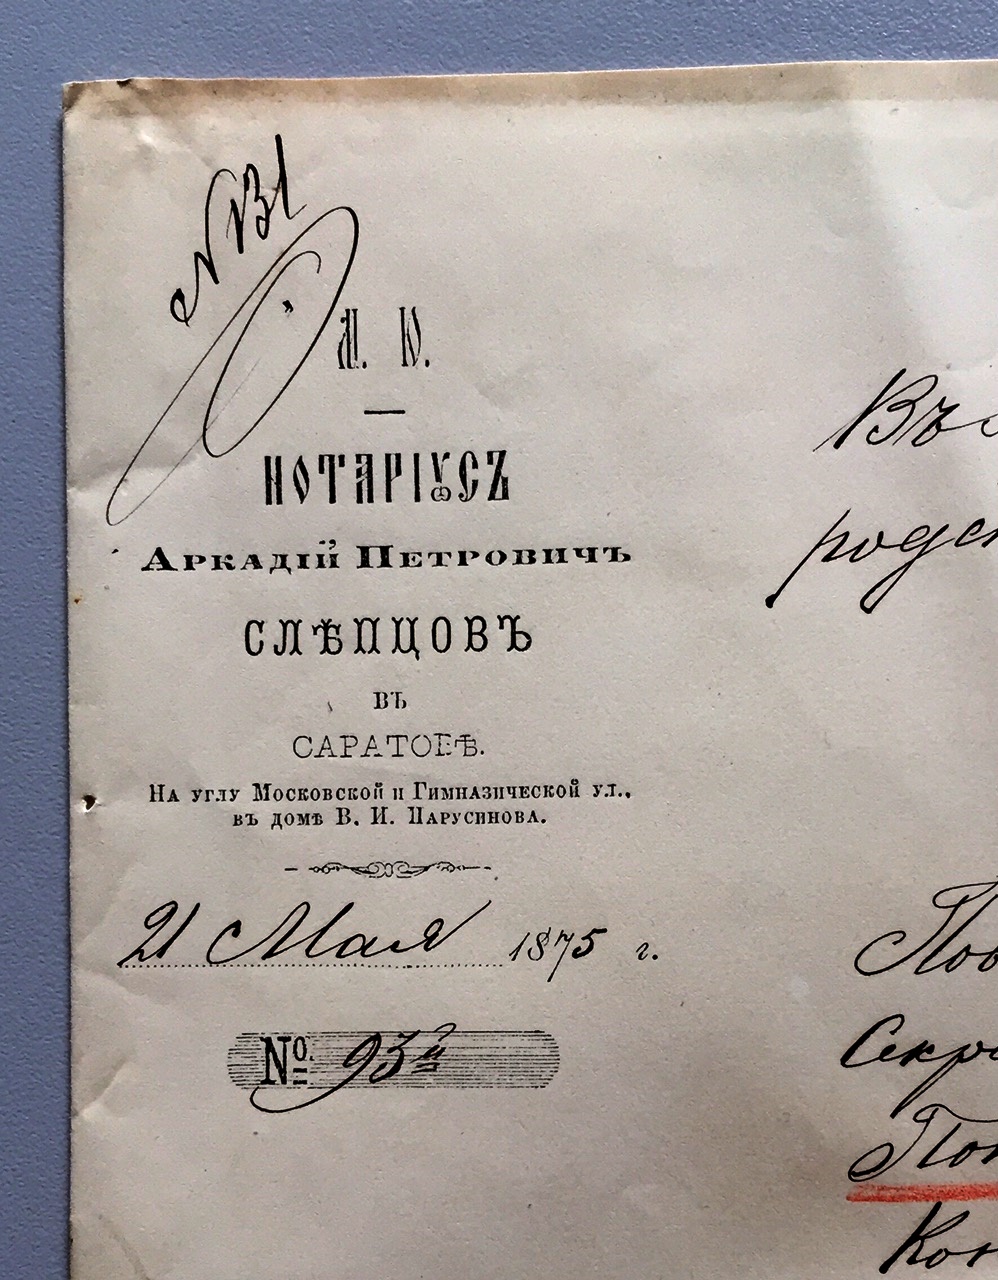 М. Ю.
НОТАРІУСЪ
Аркадій Петровичъ
СЛѢПЦОВЪ
въ
САРАТОВѢ.
На углу Московской и Гимназической ул.,
въ домѣ В. И. Парусинова.
21 Мая 1875 г.
№ 93й
Въ
родск
Пов
Секре
Кон